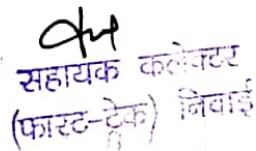 सहायक कलेक्टर
(फास्ट-ट्रेक) निवाई